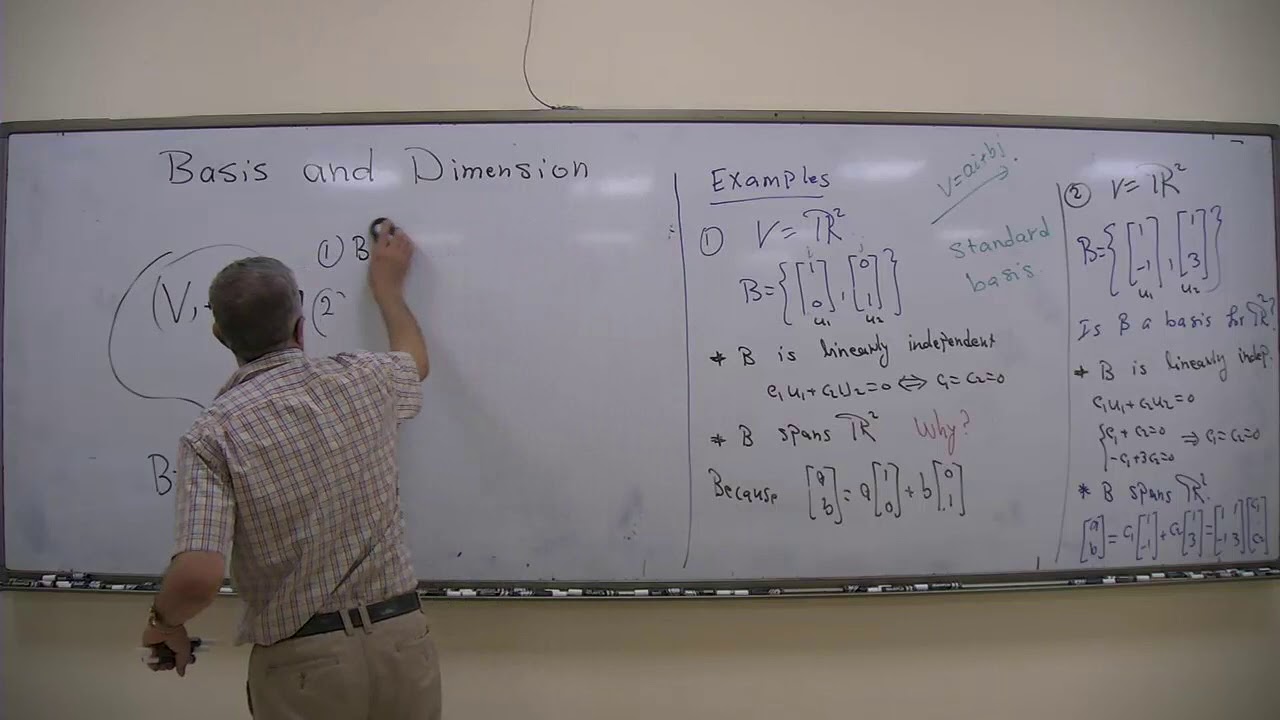 Basis and Dimension
① B
(V,
(2
B
Examples
V=ai+bj.
① V = ℝ²
i j
B={[1 0], [0 1]}
u₁ u₂
Standard
basis.
* B is linearly independent
c₁u₁+c₂u₂=0 ⇔ c₁=c₂=0
* B spans ℝ² Why?
Because [a b] = a[1 0] + b[0 1]
② V = ℝ²
B={[1 -1], [1 3]}
u₁ u₂
Is B a basis for ℝ²?
* B is linearly indep.
c₁u₁+c₂u₂=0
{c₁+c₂=0
-c₁+3c₂=0 ⇒ c₁=c₂=0
* B spans ℝ².
[a b] = c₁[1 -1] + c₂[1 3] = [1 1 -1 3][c₁ c₂]